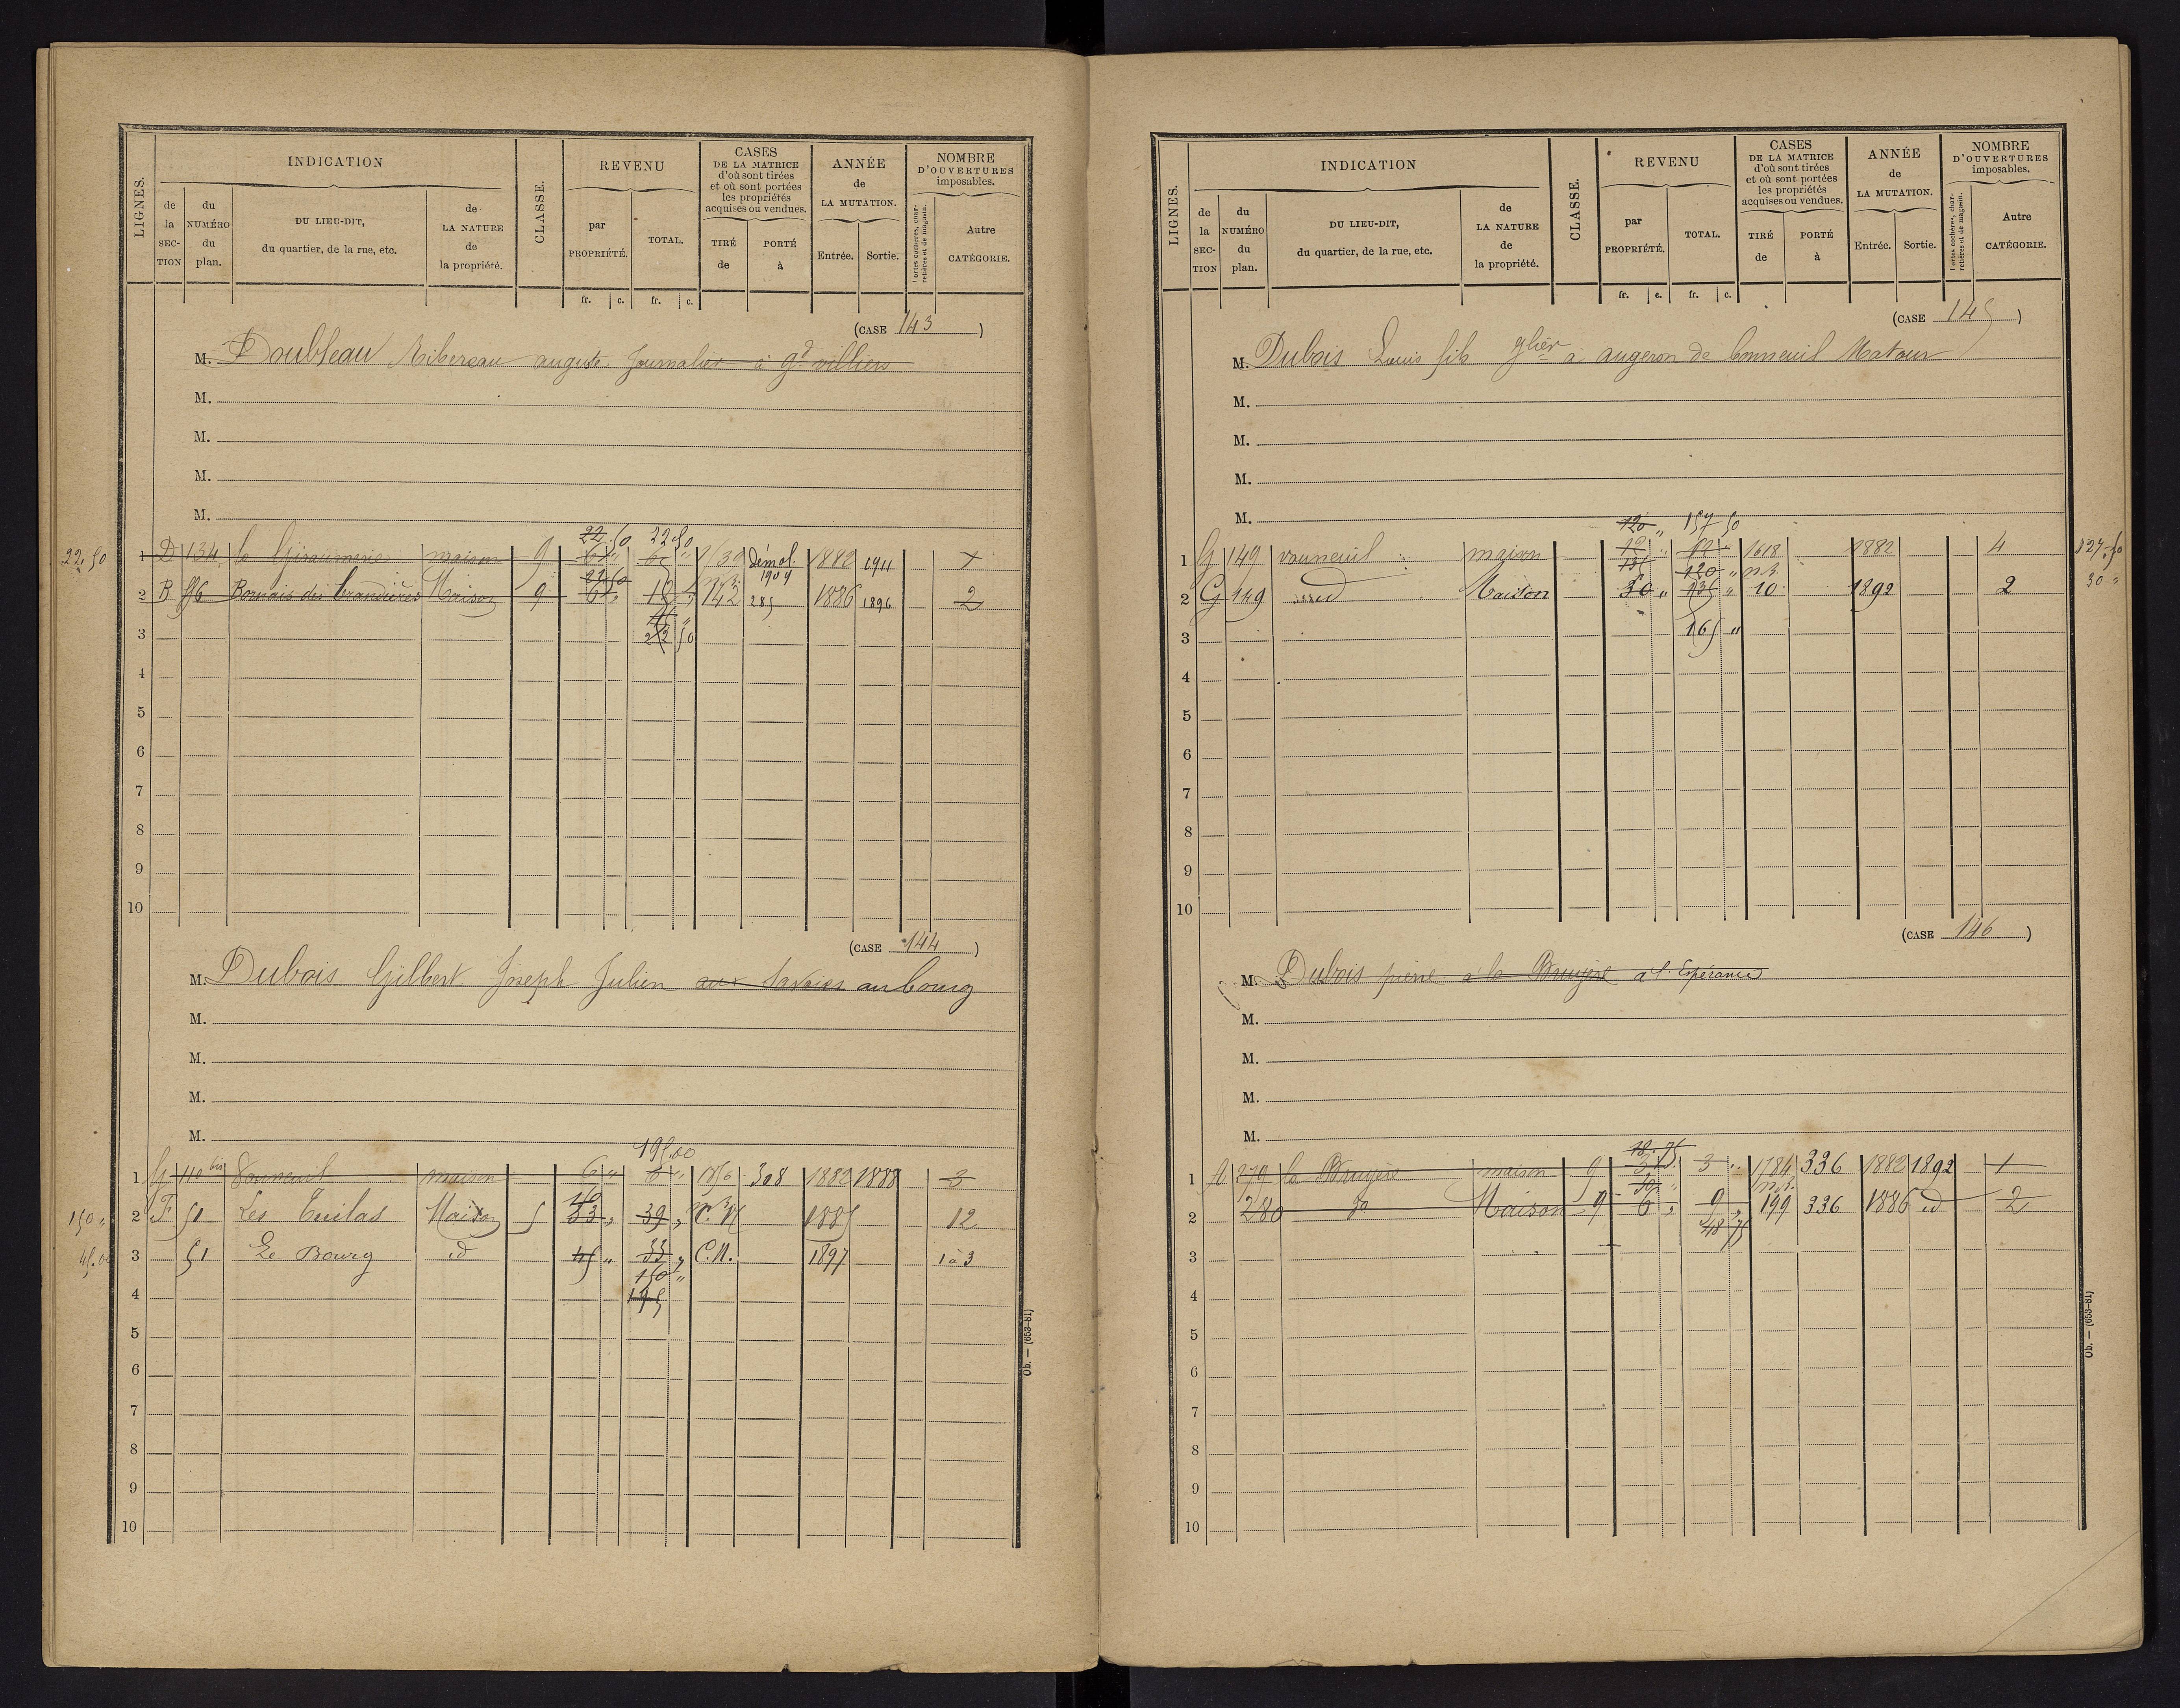 LIGNES. INDICATION CLASSE. REVENU CASES DE LA MATRICE d'où sont tirées et où sont portées les propriétés acquises ou vendues. ANNÉE de LA MUTATION. NOMBRE D'OUVERTURES imposables.
de la SECTION du NUMÉRO du plan. DU LIEU-DIT, du quartier, de la rue, etc. de LA NATURE de la propriété. par PROPRIÉTÉ. TOTAL. TIRÉ de PORTÉ à Entrée. Sortie. Portes cochères, charretières et de magasin. Autre CATÉGORIE.
fr. c. fr. c.
(CASE 143)
M. Doubleau Ribereau auguste Journalier à gd villiers
M.
M.
M.
M.
22 50 22 50
22.50 1 D 134 la maison 9 6 " 6 " démol. 1904 1882 1911 1
22 50
2 B 96 des Brandières Maison 9 6 " 12 " 142 285 1886 1896 2
3 22 50
4
5
6
7
8
9
10
(CASE 144)
M. Dubois Gilbert Joseph Julien aux Savoies au bourg
M.
M.
M.
M.
195.00
1 G 110 bis Vouneuil maison 6 " 6 " 308 1882 1888 3
150 " 2 F 51 Les Tuilas Maison 5 33 " 39 " C.N. 1885 12
45.00 3 51 Le Bourg id 45 " 33 " C.N. 1897 1 à 3
150 "
4 195
5
6
7
8
9
10
Ob. — (653-81)
LIGNES. INDICATION CLASSE. REVENU CASES DE LA MATRICE d'où sont tirées et où sont portées les propriétés acquises ou vendues. ANNÉE de LA MUTATION. NOMBRE D'OUVERTURES imposables.
de la SECTION du NUMÉRO du plan. DU LIEU-DIT, du quartier, de la rue, etc. de LA NATURE de la propriété. par PROPRIÉTÉ. TOTAL. TIRÉ de PORTÉ à Entrée. Sortie. Portes cochères, charretières et de magasin. Autre CATÉGORIE.
fr. c. fr. c.
(CASE 145)
M. Dubois Louis fils à augeron de bonneuil Matour
M.
M.
M.
M.
120 " 157 50
1 G 149 vouneuil maison 12 " 12 " 1618 1882 4 127.50
135 120 " n.3
2 G 149 id Maison 30 " 135 " 10 1892 2 30 "
3 165 "
4
5
6
7
8
9
10
(CASE 146)
M. Dubois pierre à la Bruyère à l'Espérance
M.
M.
M.
M.
18.75
1 A 279 la Bruyère maison 9 3 " 3 " 1784 336 1882 1892 1
30 " n.3.
2 280 do Maison 9 6 " 9 " 199 336 1886 id 2
48 75
3
4
5
6
7
8
9
10
Ob. — (653-81)